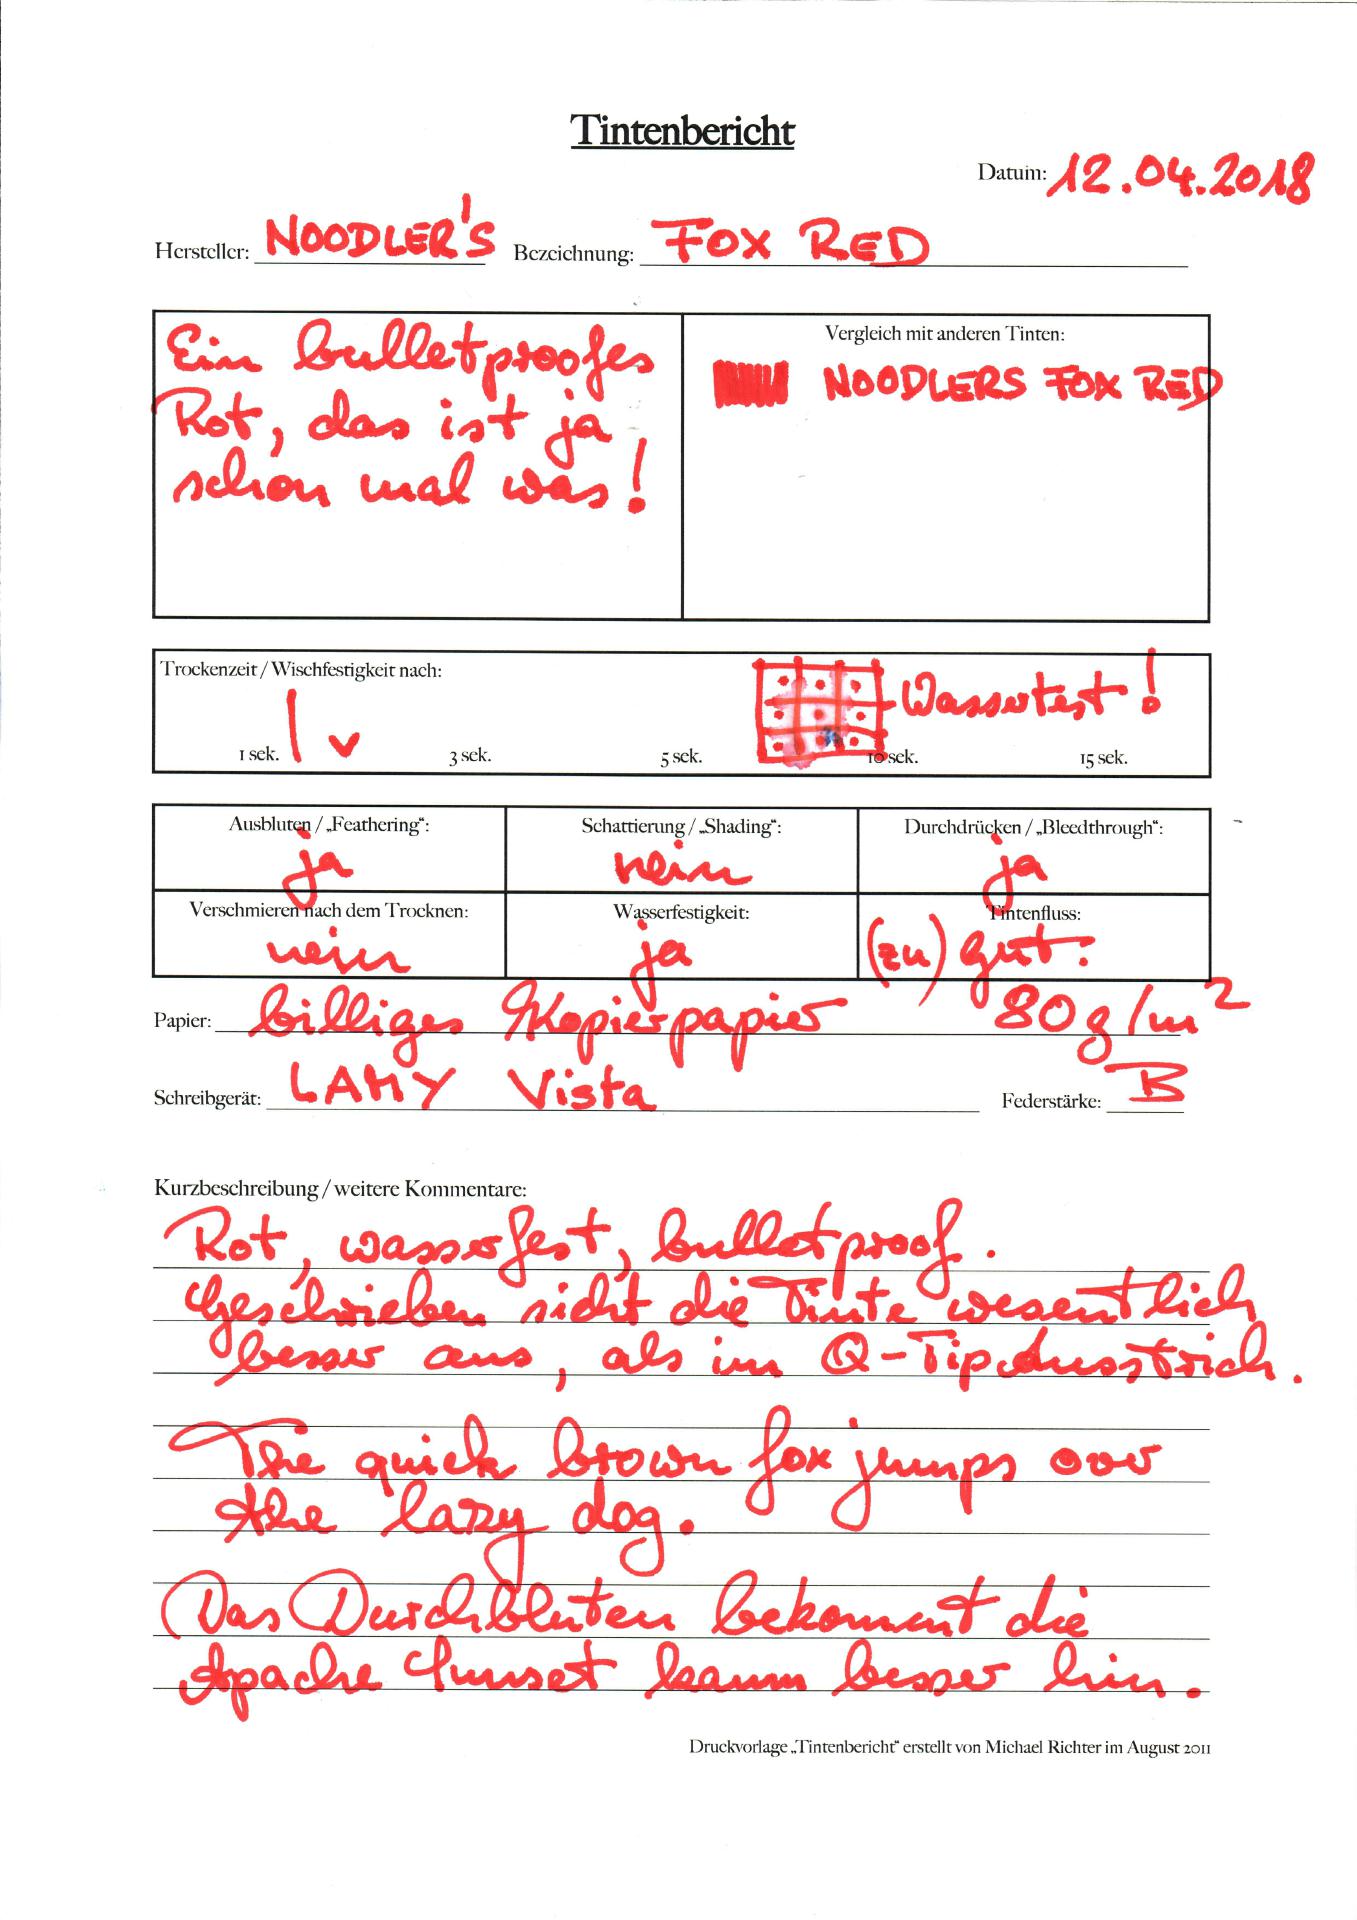 Tintenbericht
Datum: 12.04.2018
Hersteller: NOODLER'S Bezeichnung: FOX RED
Ein bulletproofes
Rot, das ist ja
schon mal was!
Vergleich mit anderen Tinten:
NOODLERS FOX RED
Trockenzeit / Wischfestigkeit nach:
Wassertest!
1 sek. 3 sek. 5 sek. 10 sek. 15 sek.
Ausbluten / „Feathering“: Schattierung / „Shading“: Durchdrücken / „Bleedthrough“:
ja nein ja
Verschmieren nach dem Trocknen: Wasserfestigkeit: Tintenfluss:
nein ja (zu) gut.
Papier: billiges Kopierpapier 80g/m²
Schreibgerät: LAMY Vista Federstärke: B
Kurzbeschreibung / weitere Kommentare:
Rot, wasserfest, bulletproof.
Geschrieben sieht die Tinte wesentlich
besser aus, als im Q-Tipausstrich.
The quick brown fox jumps over
the lazy dog.
Das Durchbluten bekommt die
Apache Sunset kaum besser hin.
Druckvorlage „Tintenbericht“ erstellt von Michael Richter im August 2011